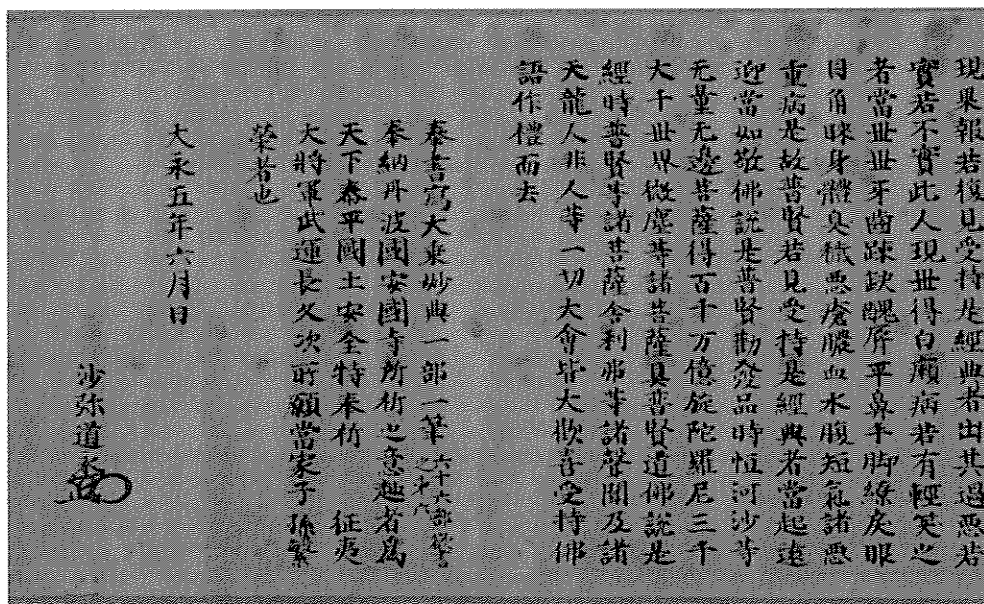 現果報若復見受持是經典者出其過惡若
實若不實此人現世得白癩病若有輕笑之
者當世世牙齒踈缺醜脣平鼻手脚繚戾眼
目角睞身體臭穢惡瘡膿血水腹短氣諸惡
重病是故普賢若見受持是經典者當起遠
迎當如敬佛說是普賢勸發品時恒河沙等
无量无邊菩薩得百千万億旋陀羅尼三千
大千世界微塵等諸菩薩具普賢道佛說是
經時普賢等諸菩薩舍利弗等諸聲聞及諸
天龍人非人等一切大會皆大歡喜受持佛
語作禮而去
奉書寫大乗妙典一部一筆六十六部
奉納丹波國安國寺所祈之意趣者爲
天下泰平國土安全特奉祈 征夷
大將軍武運長久次所願當家子孫繁
榮者也
大永五年六月日
沙弥道